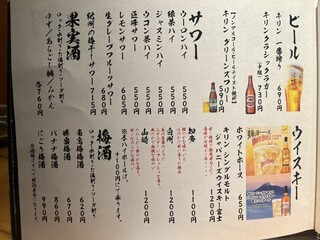 ビール
キリン一番搾り 690円
キリンクラシックラガー
(中瓶) 730円
【ノンアルコール・ビールテイスト飲料】
キリングリーンズフリー
590円
サワー
ウーロンハイ 550円
緑茶ハイ 550円
ジャスミンハイ 550円
ウコン茶ハイ 550円
巨峰サワー 550円
レモンサワー 550円
生クレープフルーツサワー 680円
紀州の梅干サワー 715円
果実酒
ロック・水割り・お湯割り・ソーダ割り
ゆず/あらごし桃/みかん
各760円
ウイスキー
ホワイトホース 650円
キリン シングルモルト
ジャパニーズウイスキー富士
1200円
知多 1100円
白州 1200円
山崎 1200円
梅酒
ロック・水割り・お湯割り・ソーダ割り
南高梅酒 620円
蜂蜜梅酒 670円
バナナ梅酒 860円
にごり梅酒 990円